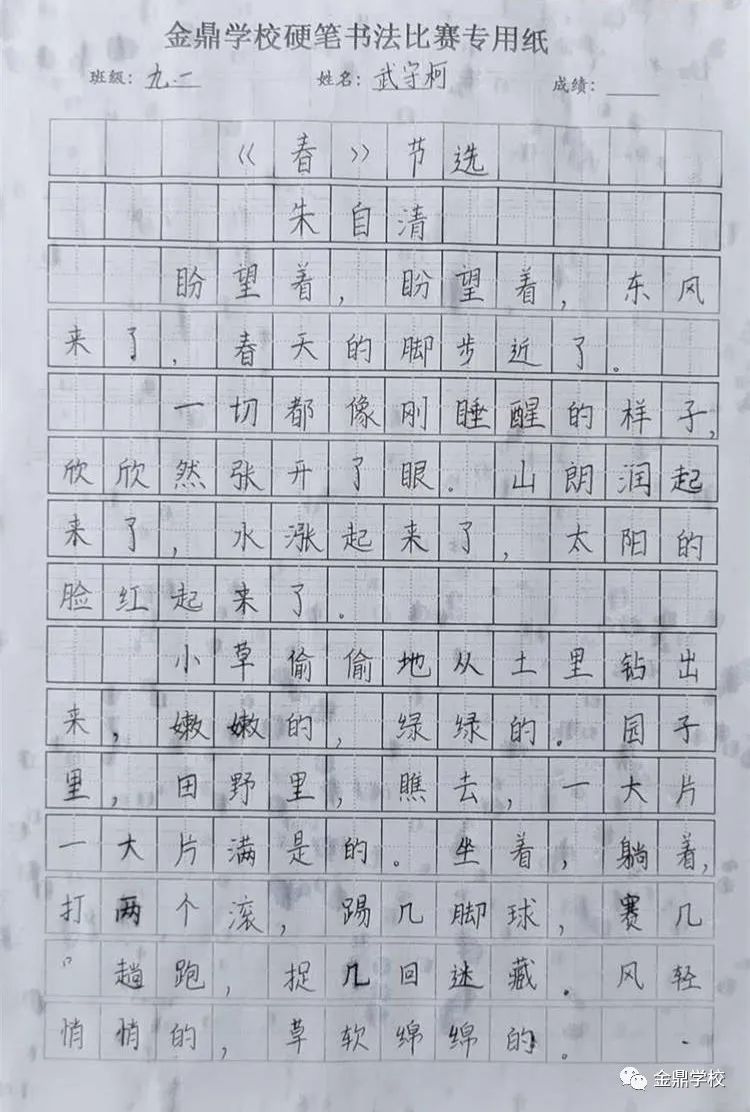 金鼎学校硬笔书法比赛专用纸
班级：九.一 姓名：武守柯 成绩：
《春》节选
朱自清
盼望着，盼望着，东风
来了，春天的脚步近了。
一切都像刚睡醒的样子，
欣欣然张开了眼。山朗润起
来了，水涨起来了，太阳的
脸红起来了。
小草偷偷地从土里钻出
来，嫩嫩的，绿绿的。园子
里，田野里，瞧去，一大片
一大片满是的。坐着，躺着，
打两个滚，踢几脚球，赛几
趟跑，捉几回迷藏。风轻
悄悄的，草软绵绵的。
金鼎学校